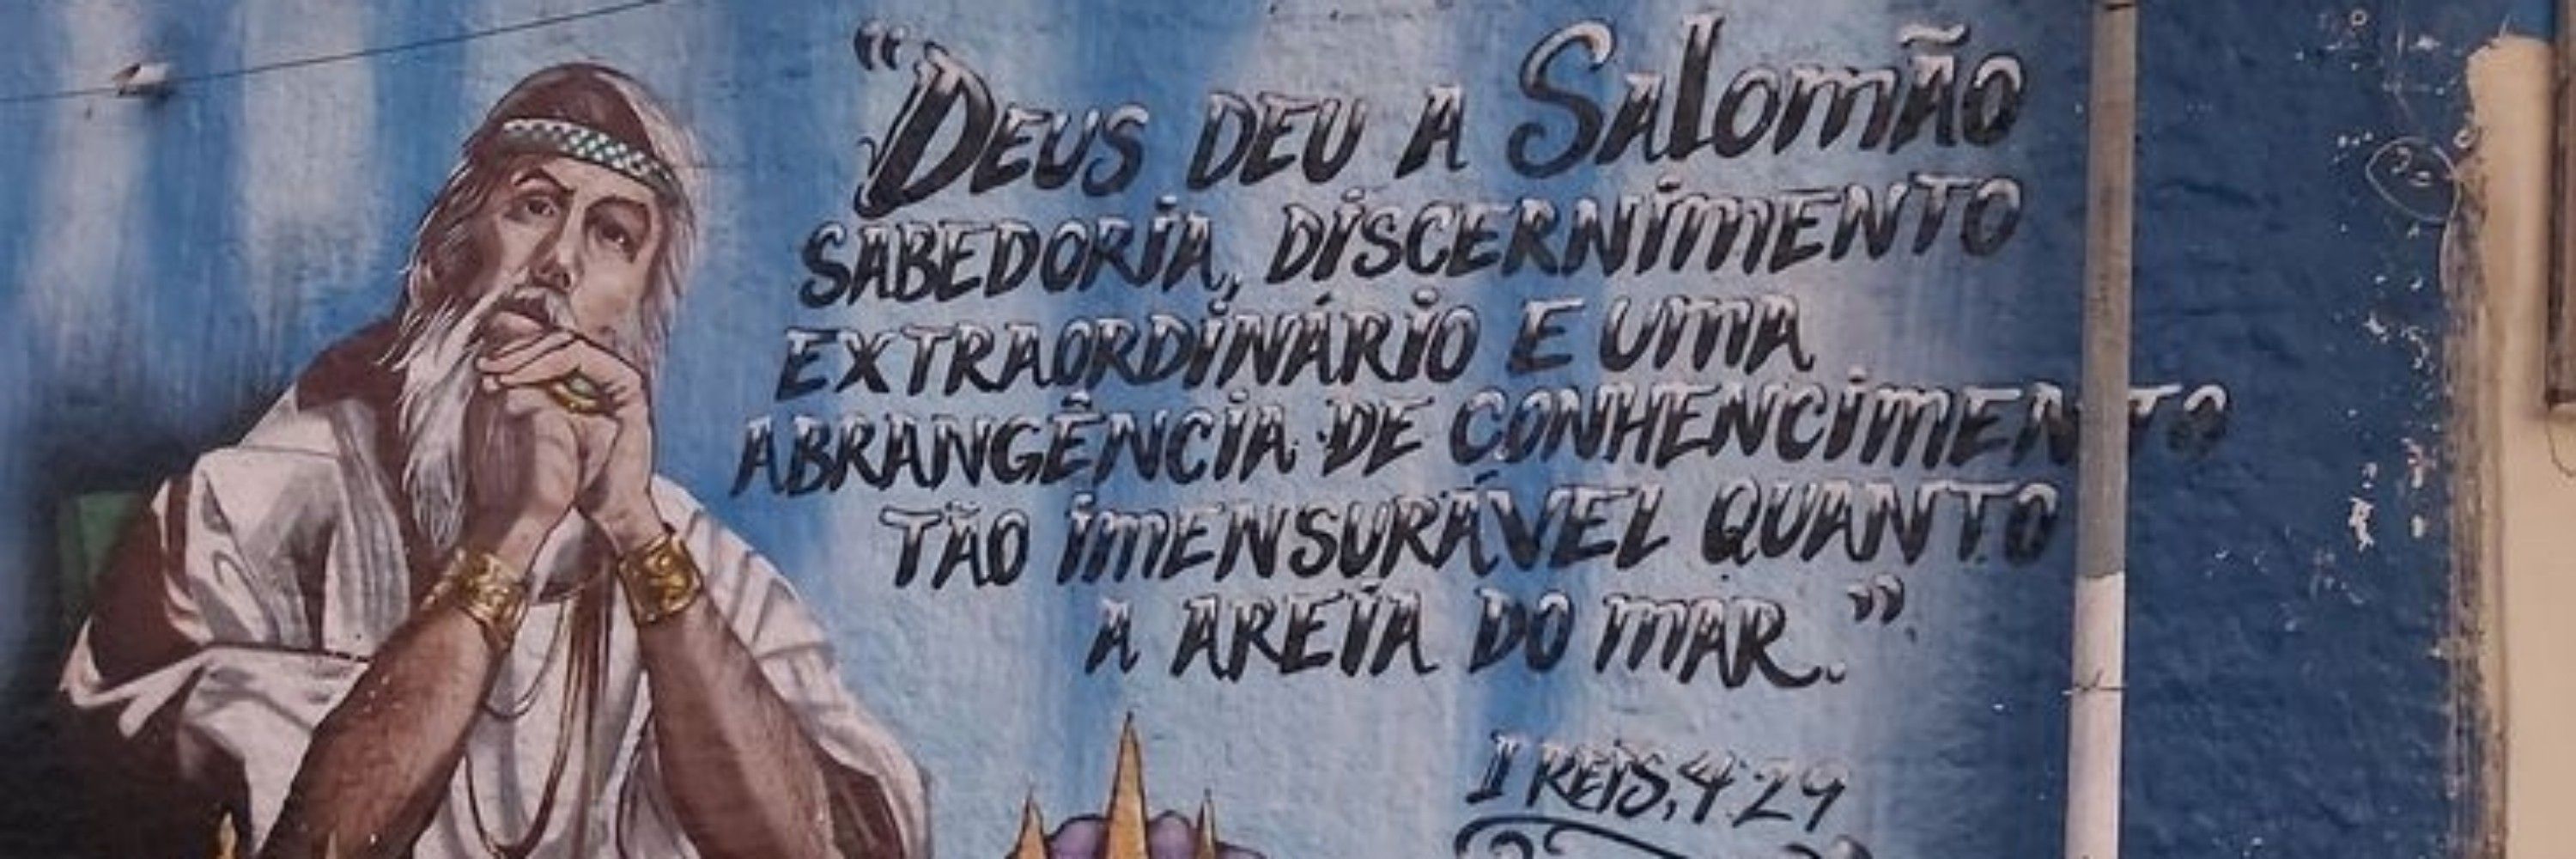 "DEUS DEU A SALOMÃO
SABEDORIA, DISCERNIMENTO
EXTRAORDINÁRIO E UMA
ABRANGÊNCIA DE CONHENCIMENTO
TÃO IMENSURÁVEL QUANTO
A AREIA DO MAR."
I REIS, 4:29